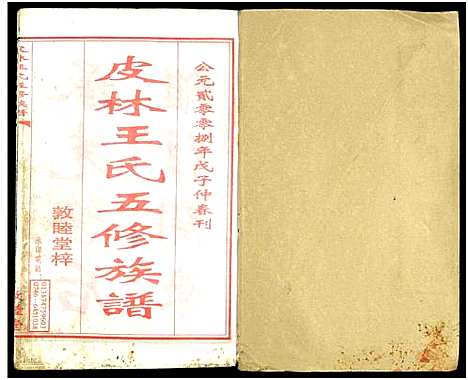 公元贰零零捌年戊子仲春刊
皮林王氏五修族譜
敦睦堂梓